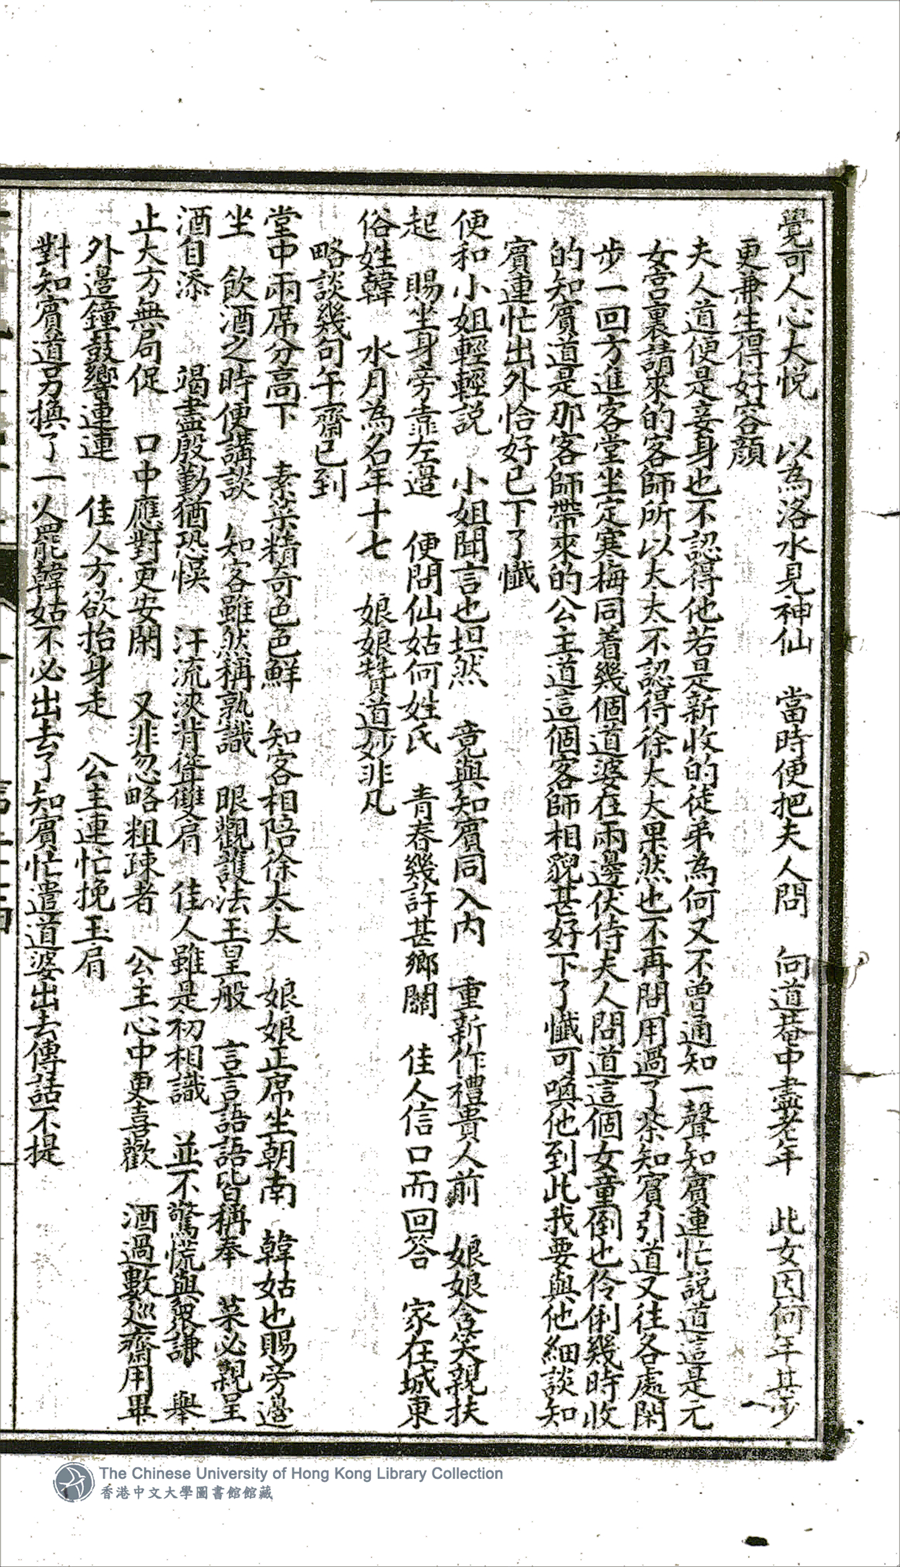 覺可人心大悅　以為洛水見神仙　當時便把夫人問　向道菴中盡老年　此女因何年甚少
更兼生得好容顏
夫人道便是妾身也不認得他若是新收的徒弟為何又不曾通知一聲知賓連忙說道這是元
女宮裏請來的客師所以太太不認得徐太太果然也不再問用過了茶知賓引道又往各處閑
步一回方進客堂坐定寒梅同着幾個道婆在兩邊伏侍夫人問道這個女童倒也伶俐幾時收
的知賓道是那客師帶來的公主道這個客師相貌甚好下了懺可喚他到此我要與他細談知
賓連忙出外恰好已下了懺
便和小姐輕輕說　小姐聞言也坦然　竟與知賓同入內　重新作禮貴人前　娘娘含笑親扶
起　賜坐身旁靠左邊　便問仙姑何姓氏　青春幾許甚鄉關　佳人信口而回答　家在城東
俗姓韓　水月為名年十七　娘娘贊道妙非凡
略談幾句午齋已到
堂中兩席分高下　素菜精奇色色鮮　知客相陪徐太太　娘娘正席坐朝南　韓姑也賜旁邊
坐　飲酒之時便講談　知客雖然稱熟識　眼觀護法玉皇般　言言語語皆稱奉　菜必親呈
酒自添　竭盡殷勤猶恐悮　汗流浹背聳雙肩　佳人雖是初相識　並不驚慌與衆謙　舉
止大方無局促　口中應對更安閑　又非忽略粗疎者　公主心中更喜歡　酒過數巡齋用畢
外邊鐘鼓響連連　佳人方欲抬身走　公主連忙挽玉肩
對知賓道另換了一人罷韓姑不必出去了知賓忙遣道婆出去傳話不提
The Chinese University of Hong Kong Library Collection
香港中文大學圖書館館藏